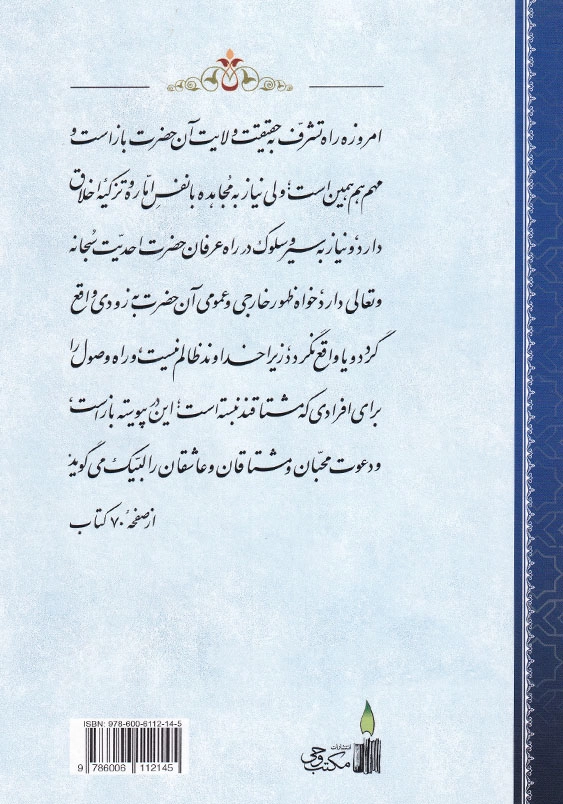 امروزه راه تشرّف به حقیقت ولایت آن حضرت باز است و
مهم هم همین است؛ ولی نیاز به مُجاهده با نفسِ امّاره و تزکیهٔ اخلاق
دارد، و نیاز به سیر و سلوک در راه عرفان حضرت احدیّت سُبحانه
و تعالی دارد، خواه ظهور خارجی و عمومی آن حضرت به زودی واقع
گردد و یا واقع نگردد، زیرا خداوند ظالم نیست، و راه وصول را
برای افرادی که مشتاقند نبسته است؛ این در پیوسته باز است،
و دعوت محبّان و مشتاقان و عاشقان را لبّیک می‌گوید
از صفحهٔ ۷۰ کتاب
ISBN: 978-600-6112-14-5
9 786006 112145
انتشارات
مکتب وحی